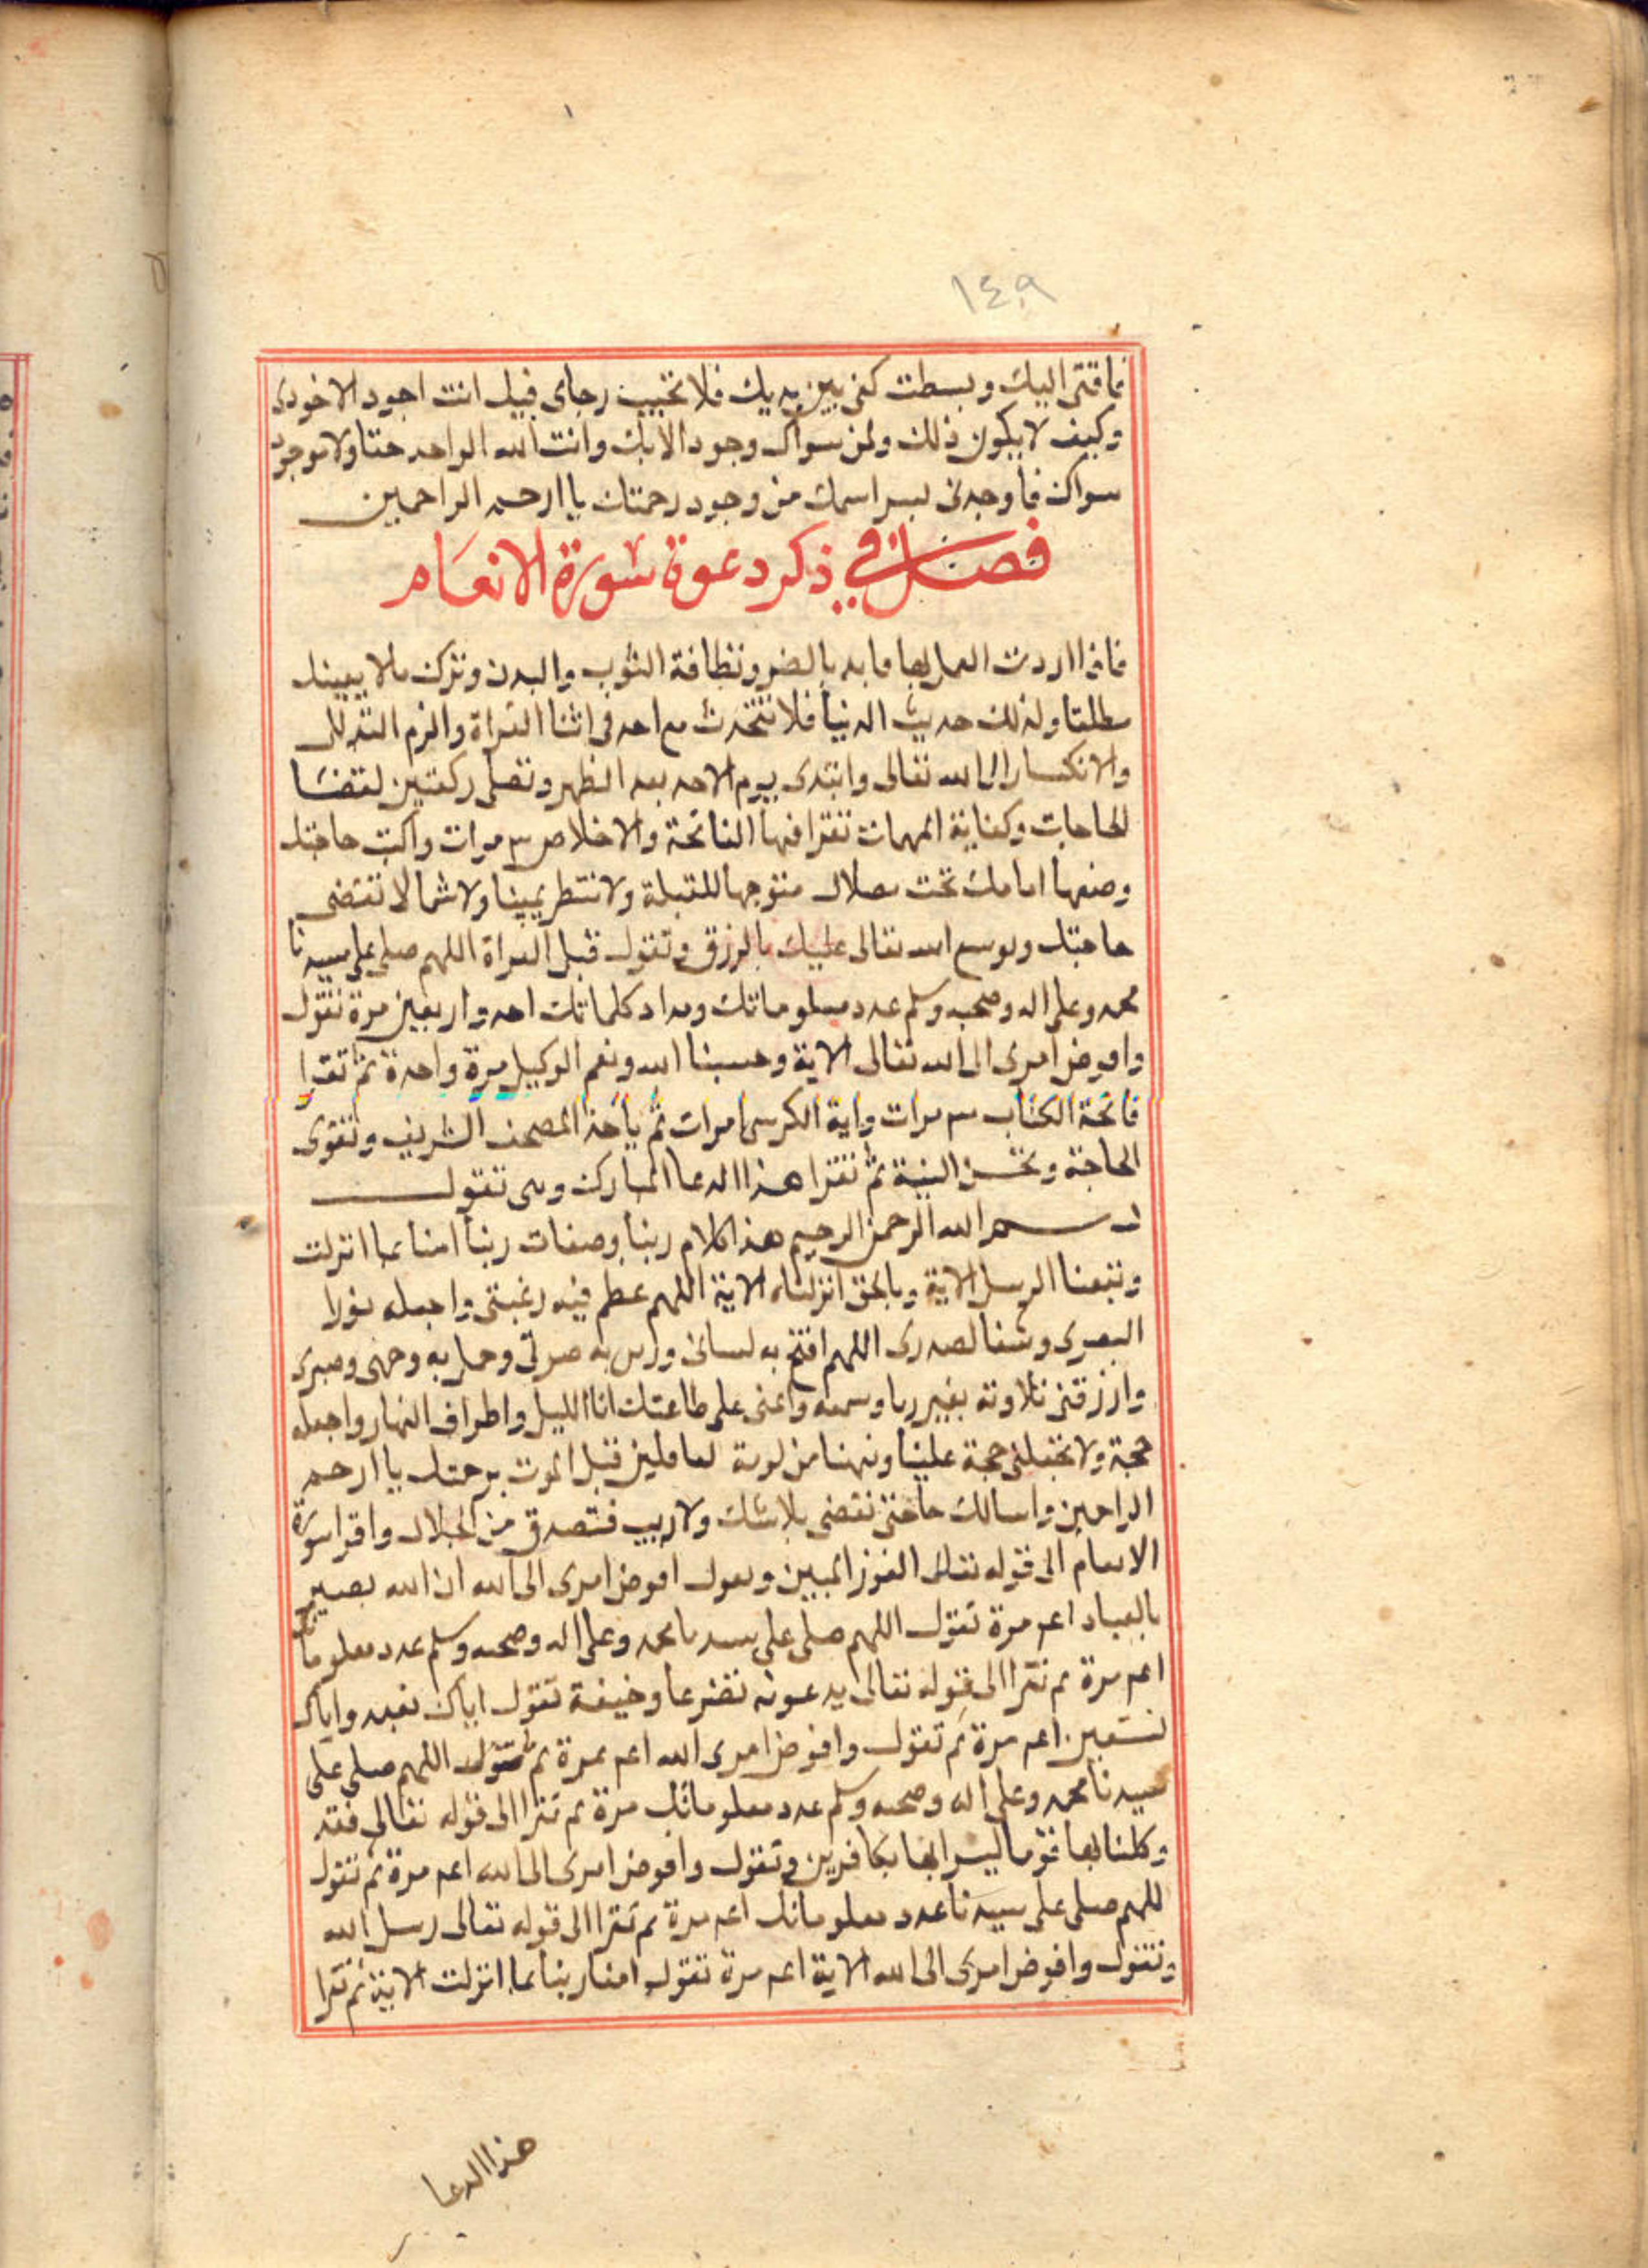 ١٤٩
فاقتى اليك وبسطت كفى بين يديك فلا تخيب رجاى فيك انت اجود الاجودى
وكيف لا يكون ذلك ولمن سواك وجود الا بك وانت الله الواحد حقا ولا موجود
سواك فاوجدنى بسر اسمك من وجود رحمتك يا ارحم الراحمين
فصل في ذكر دعوة سورة الانعام
فاذا اردت العمل بها فابد بالضر ونظافة الثوب والبدن وتترك مالا يعينك
مطلقا وله لك حديث الدنيا فلا تتحدث مع احد فى اثنا القراة والزم التذلل
والانكسار الى الله تعالى وابتدى بيوم الاحد بعد الظهر وتصلى ركعتين لقضا
الحاجات وكفاية المهمات تقرا فيها الفاتحة والاخلاص ٣ مرات واكتب حاجتك
وضعها امامك تحت مصلاك متوجها للقبلة ولا تنتظر يمينا ولا شمالا تقضى
حاجتك ويوسع الله تعالى عليك بالرزق وتقول قبل القراة اللهم صلى على سيدنا
محمد وعلى اله وصحبه وسلم عدد معلوماتك ومداد كلماتك احد واربعين مرة تقول
وافوض امرى الى الله تعالى الاية وحسبنا الله ونعم الوكيل مرة واحدة ثم تقرا
فاتحة الكتاب ٣ مرات واية الكرسى مرات ثم ياخذ المصحف الشريف وتنوى
الحاجة وتحسن النية ثم تقرا هذا الدعا المبارك وهى تقول
بسم الله الرحمن الرحيم هذا كلام ربنا وصفات ربنا امنا بما انزلت
وتبعنا الرسل الاية وبالحق انزلناه الاية اللهم عظم فيه رغبتى واجعله نورا
لبصرى وشفا لصدرى اللهم افتح به لسانى وزين به صوتى وجمل به وجهى وصبرى
وارزقنى تلاوته بغير ريا وسمعه واعنى على طاعتك انا الليل واطراف النهار واجعله
حجة ولا تجعلنى حجة علينا ونبهنا من لومة لعاملين قبل الموت برحمتك يا ارحم
الراحمين واسالك حاجتى تقضى بلا شك ولا ريب فتصدق من الحلال واقرا سورة
الانعام الى قوله تعالى الفوز المبين وتقول افوض امرى الى الله ان الله بصير
بالعباد اعم مرة تقول اللهم صلى على سيدنا محمد وعلى اله وصحبه وسلم عدد معلوماتك
اعم مرة ثم تقرا الى قوله تعالى يدعونه تضرعا وخيفة تقول اياك نعبد واياك
نستعين اعم مرة ثم تقول وافوض امرى الله اعم مرة ثم تقول اللهم صلى على
سيدنا محمد وعلى اله وصحبه وسلم عدد معلوماتك مرة ثم تقرا الى قوله تعالى فقد
وكلنا بها قوما ليسوا بها بكافرين وتقول وافوض امرى الى الله اعم مرة ثم تقول
للهم صلى على سيدنا عدد معلوماتك اعم مرة ثم تقرا الى قوله تعالى رسل الله
وتقول وافوض امرى الى الله الاية اعم مرة تقول امنا ربنا بما انزلت الاية ثم تقرا
هذا الدعا